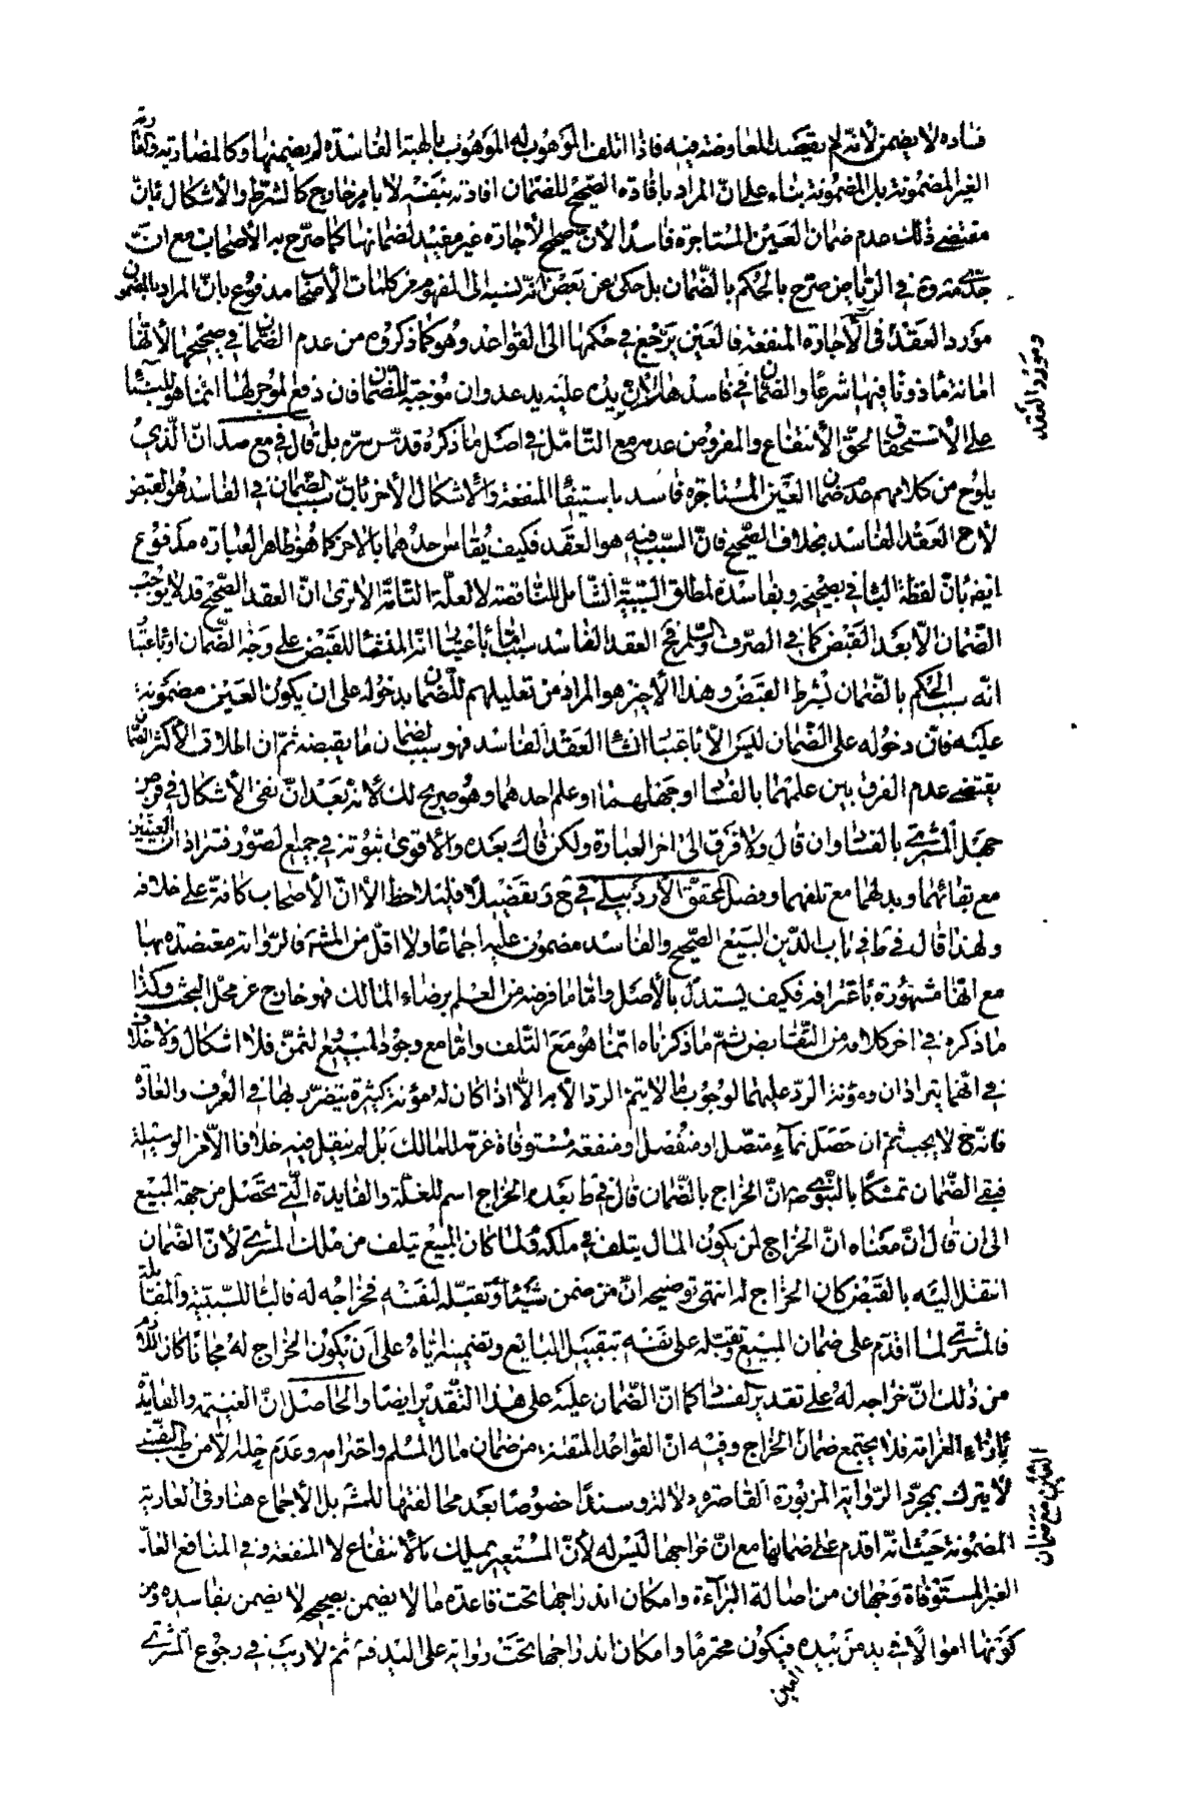 فساده لا يضمن لأنه لم يقصد المعاوضة فيه فاذا اتلف الموهوب له الموهوب بالهبة الفاسدة لم يضمنها وكالمضاربة والعارية
الغير المضمونة بل المضمونة بناء على ان المراد بافادة الصحيح للضمان افادته بنفسه لا بامر خارج كالشرط والأشكال بأن
مقتضى ذلك عدم ضمان العين المستاجرة فاسدا لأن صحيح الأجارة غير مفيد لضمانها كما صرح به الأصحاب مع ان
جدى قده في الرياض صرح بالحكم بالضمان بل حكى عن بعض انه نسبه الى المفهوم من كلمات الأصحاب مدفوع بان المراد بالمضمون
مورد العقد ومورد العقد في الأجارة المنفعة فالعين يرجع في حكمها الى القواعد وهو كما ذكروه من عدم الضمان في صحيحها لأنها
امانة ماذونا فيها شرعا والضمان في فاسدها لأن يده عليه يد عدوان موجبة للضمان فان دفع الموجر لها انما هو للبناء
على الأستحقاق لحق الأنتفاع والمفروض عدمه مع التأمل في اصل ما ذكره قدس سره بل قال في مع صد ان الذي
يلوح من كلامهم عدم ضمان العين المستاجرة فاسدا باستيفاء المنفعة والأشكال الأخر بان سبب الضمان في الفاسد هو القبض
لا العقد الفاسد بخلاف الصحيح فان السبب فيه هو العقد فكيف يقاس احدهما بالاخر كما هو ظاهر العبارة مدفوع
ايضا بان لفظة الباء في بصحيحه وبفاسده لمطلق السببية الشامل للناقصة لا لعلة التامة الا ترى ان العقد الصحيح قد لا يوجب
الضمان الا بعد القبض كما في الصرف والسلم فح العقد الفاسد سبب اما باعتبار انه المنشأ للقبض على وجه الضمان او باعتبار
انه سبب الحكم بالضمان بشرط القبض وهذا الأخير هو المراد من تعليلهم للضمان بدخوله على ان يكون العين مضمونة
عليه فان دخوله على الضمان ليس الا باعتبار انشاء العقد الفاسد فهو سبب لضمان ما يقبضه ثم ان اطلاق الأكثر الضمان
يقتضى عدم الفرق بين علمهما بالفساد او جهلهما او علم احدهما وهو صريح لك لأنه بعد ان نفى الأشكال في فرض
جهل المشترى بالفساد وان قال ولا فرق الى اخر العبارة ولكن قال بعده والأقوى ثبوته في جميع الصور فتراد ان العينين
مع بقائهما وبدلهما مع تلفهما وفصل المحقق الأردبيلى في ح د تفضيلا فليلاحظ الا ان الأصحاب كافة على خلافه
ولهذا قال في ط في باب الدين البيع الصحيح والفاسد مضمون عليه اجماعا ولا اقل من الشهرة فالرواية معتضدة بها
مع انها مشهورة باعترافه فكيف يستدل بالأصل واما ما فرضه من العلم برضاء المالك فهو خارج عن محل البحث وكذا
ما ذكره في اخر كلامه من التقابض ثم ما ذكرناه انما هو مع التلف واما مع وجود المبيع والثمن فلا اشكال ولا خلاف
في انهما يترادان ومؤنة الرد عليهما لوجوب ما لا يتم الرد الا به الا اذا كان له مؤنة كثيرة يتضرر بها في العرف والعادة
فانه ح لا يجب ثم ان حصل نماء متصل او منفصل او منفعة مستوفاة غرمه للمالك بل لم ينقل فيه خلاف الا من الوسيلة
فنفى الضمان تمسكا بالنبوى ص ان الخراج بالضمان قال في ط بعده الخراج اسم للغلة والفايدة التي تحصل من جهة المبيع
الى ان قال ان معناه ان الخراج لمن يكون المال يتلف في ملكه فلما كان المبيع يتلف من ملك المشترى لأن الضمان
انتقل اليه بالقبض كان الخراج له انتهى توضيحه ان من ضمن شيئا وتقبله لنفسه فخراجه له فالباء للسببية والمقابلة
فالمشترى لما اقدم على ضمان المبيع وتقبله على نفسه بتقبيل البايع وتضمينه اياه على ان يكون الخراج له مجانا كان اللازم
من ذلك ان خراجه له على تقدير الفساد كما ان الضمان عليه على هذا التقدير ايضا والحاصل ان الغنيمة والفايدة
بازاء الغرامة فلا يجتمع ضمان العين مع ضمان الخراج وفيه ان القواعد المتقنة من ضمان مال المسلم واحترامه وعدم حله الا من طيب النفس
لا يترك بمجرد الرواية المزبورة القاصرة دلالة وسندا خصوصا بعد مخالفتها للمشهور بل الأجماع هنا وفي العارية
المضمونة حيث انه اقدم على ضمانها مع ان خراجها ليس له لأن المستعير يملك الأنتفاع لا المنفعة وفي المنافع الفائتة
الغير المستوفاة وجهان من اصالة البراءة وامكان اندراجها تحت قاعدة ما لا يضمن بصحيحه لا يضمن بفاسده ومن
كونها اموالا في يد من بيده العين فيكون محترما وامكان اندراجها تحت رواية على اليد فة ثم لا ريب في رجوع المشترى